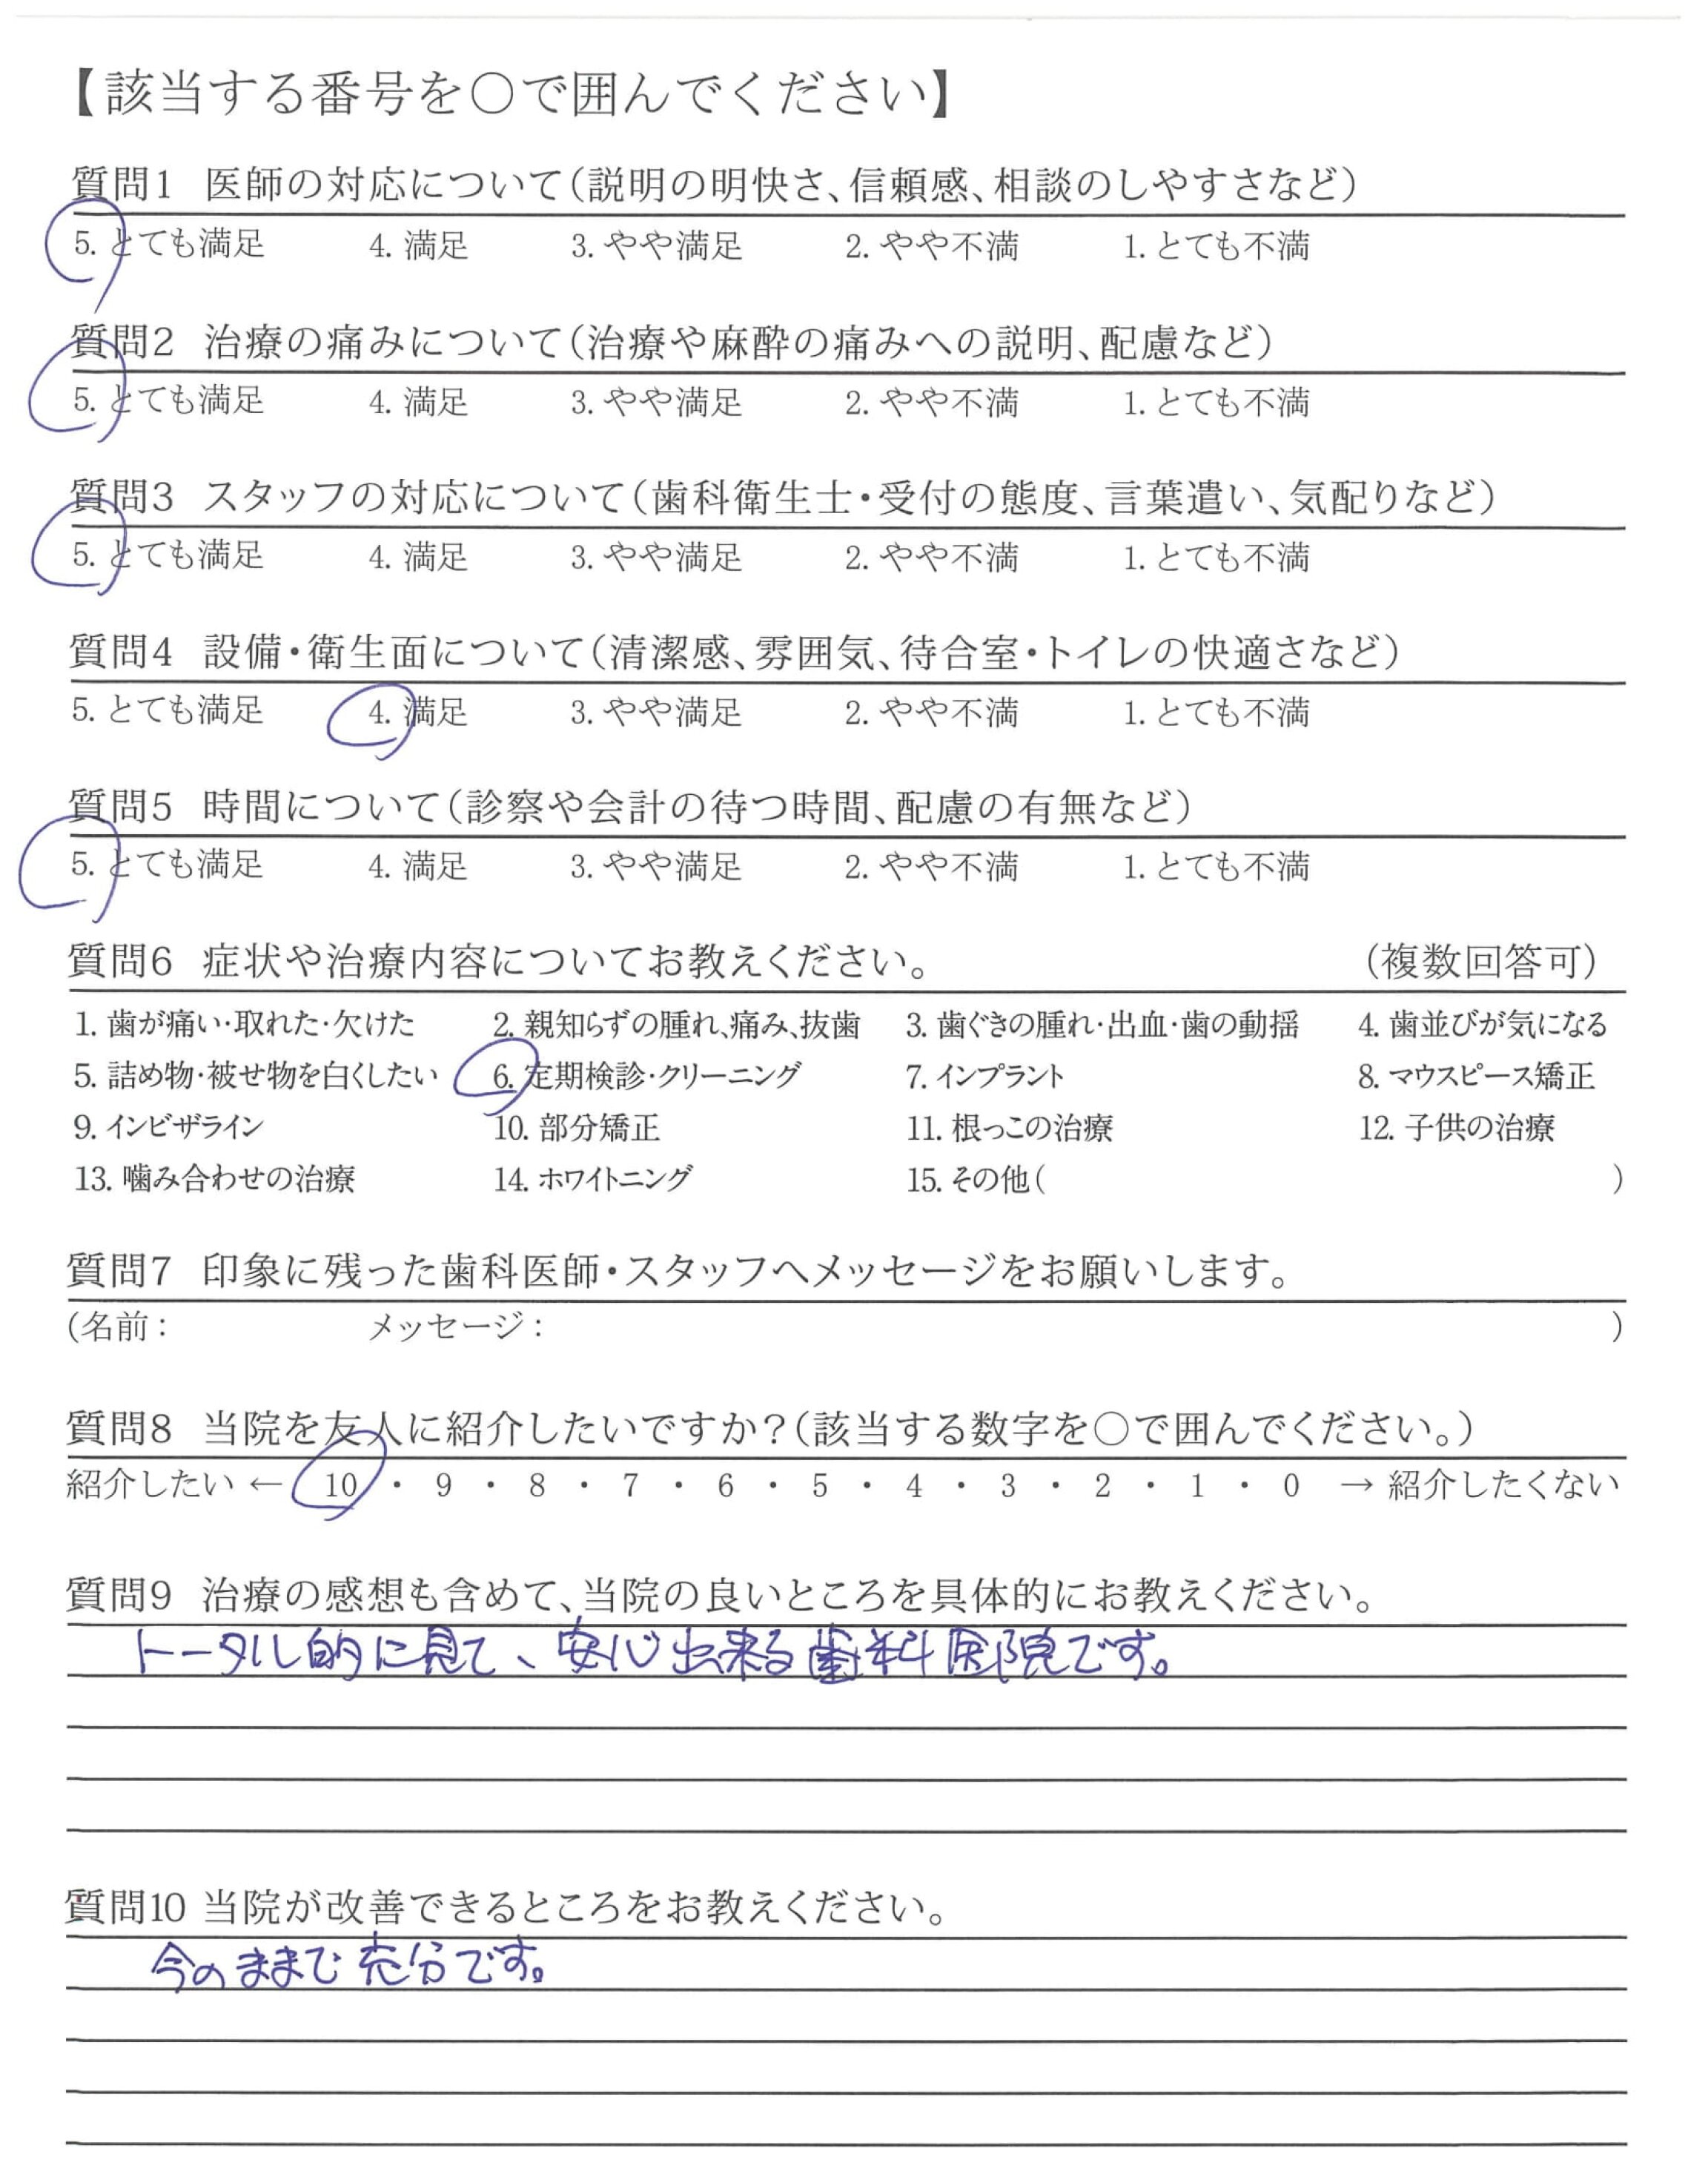 【該当する番号を○で囲んでください】
質問1 医師の対応について(説明の明快さ、信頼感、相談のしやすさなど)
5. とても満足 4. 満足 3. やや満足 2. やや不満 1. とても不満
質問2 治療の痛みについて(治療や麻酔の痛みへの説明、配慮など)
5. とても満足 4. 満足 3. やや満足 2. やや不満 1. とても不満
質問3 スタッフの対応について(歯科衛生士・受付の態度、言葉遣い、気配りなど)
5. とても満足 4. 満足 3. やや満足 2. やや不満 1. とても不満
質問4 設備・衛生面について(清潔感、雰囲気、待合室・トイレの快適さなど)
5. とても満足 4. 満足 3. やや満足 2. やや不満 1. とても不満
質問5 時間について(診察や会計の待つ時間、配慮の有無など)
5. とても満足 4. 満足 3. やや満足 2. やや不満 1. とても不満
質問6 症状や治療内容についてお教えください。 (複数回答可)
1. 歯が痛い・取れた・欠けた 2. 親知らずの腫れ、痛み、抜歯 3. 歯ぐきの腫れ・出血・歯の動揺 4. 歯並びが気になる
5. 詰め物・被せ物を白くしたい 6. 定期検診・クリーニング 7. インプラント 8. マウスピース矯正
9. インビザライン 10. 部分矯正 11. 根っこの治療 12. 子供の治療
13. 噛み合わせの治療 14. ホワイトニング 15. その他( )
質問7 印象に残った歯科医師・スタッフへメッセージをお願いします。
(名前: メッセージ: )
質問8 当院を友人に紹介したいですか?(該当する数字を○で囲んでください。)
紹介したい ← 10 ・ 9 ・ 8 ・ 7 ・ 6 ・ 5 ・ 4 ・ 3 ・ 2 ・ 1 ・ 0 → 紹介したくない
質問9 治療の感想も含めて、当院の良いところを具体的にお教えください。
トータル的に見て、安心出来る歯科医院です。
質問10 当院が改善できるところをお教えください。
今のままで充分です。